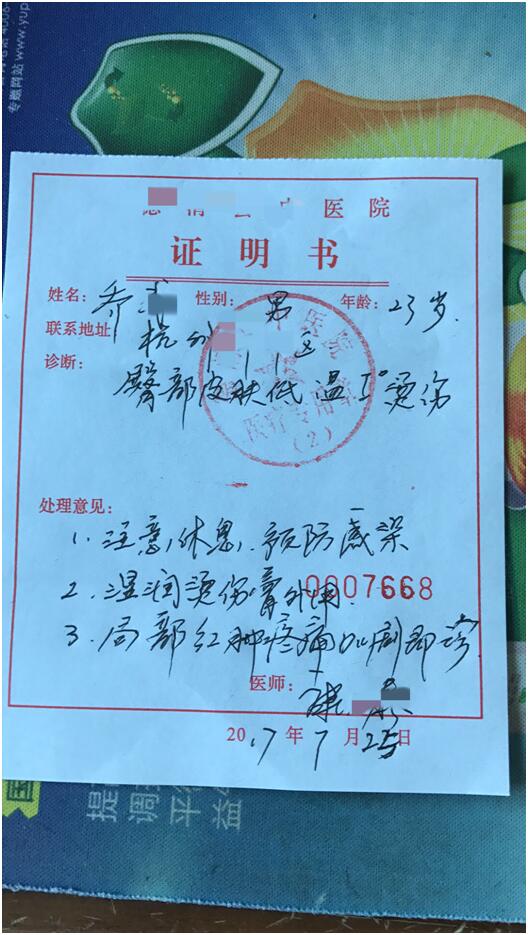 专题网站 www.yup
医院
证明书
姓名：乔 性别：男 年龄：23岁.
联系地址 杭州
诊断：
臀部皮肤低温I°烫伤
医疗专用章
（2）
处理意见：
1. 注意休息，预防感染
2. 湿润烫伤膏外用.
0007668
3. 局部红肿疼痛加剧即诊
医师：
2017年7月25日
国
提
调
平
益